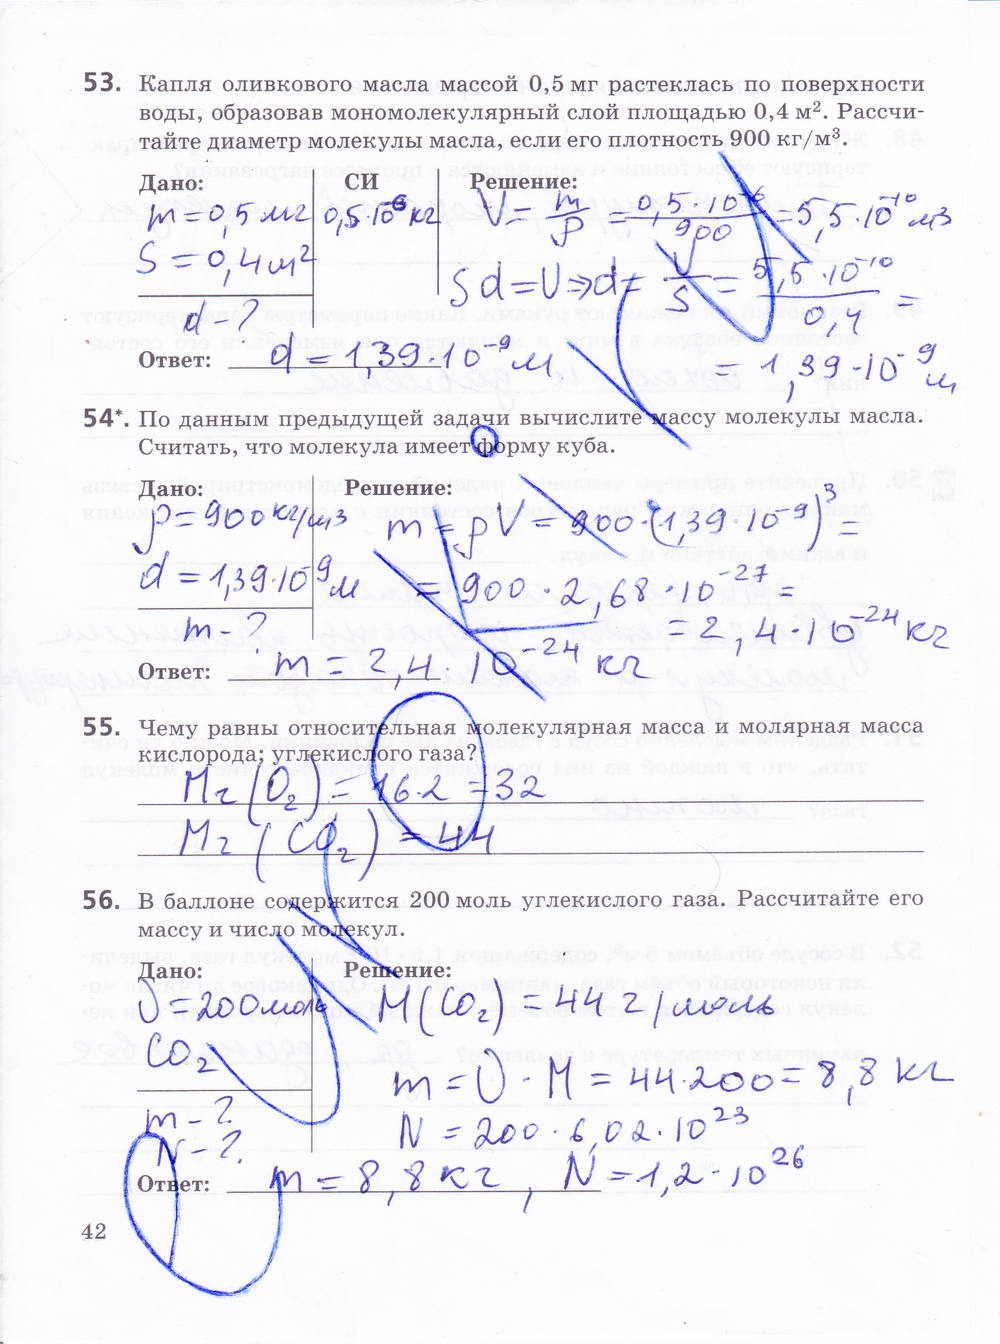 53. Капля оливкового масла массой 0,5 мг растеклась по поверхности
воды, образовав мономолекулярный слой площадью 0,4 м². Рассчи-
тайте диаметр молекулы масла, если его плотность 900 кг/м³.
Дано: СИ Решение:
m = 0,5 мг 0,5·10⁻⁶ кг V = m/ρ = 0,5·10⁻⁶/900 = 5,5·10⁻¹⁰ м3
S = 0,4 м²
S d = V ⇒ d = V/S = 5,5·10⁻¹⁰/0,4 =
d - ?
= 1,39·10⁻⁹ м
Ответ: d = 1,39·10⁻⁹ м
54*. По данным предыдущей задачи вычислите массу молекулы масла.
Считать, что молекула имеет форму куба.
Дано: Решение:
ρ = 900 кг/м3 m = ρV = 900·(1,39·10⁻⁹)³ =
d = 1,39·10⁻⁹ м = 900·2,68·10⁻²⁷ =
m - ? = 2,4·10⁻²⁴ кг
Ответ: m = 2,4·10⁻²⁴ кг
55. Чему равны относительная молекулярная масса и молярная масса
кислорода; углекислого газа?
Mr (O₂) = 16·2 = 32
Mr (CO₂) = 44
56. В баллоне содержится 200 моль углекислого газа. Рассчитайте его
массу и число молекул.
Дано: Решение:
υ = 200 моль M(CO₂) = 44 г/моль
CO₂
m = υ · M = 44·200 = 8,8 кг
m - ?
N = 200·6,02·10²³
N - ?
Ответ: m = 8,8 кг, N = 1,2·10²⁶
42